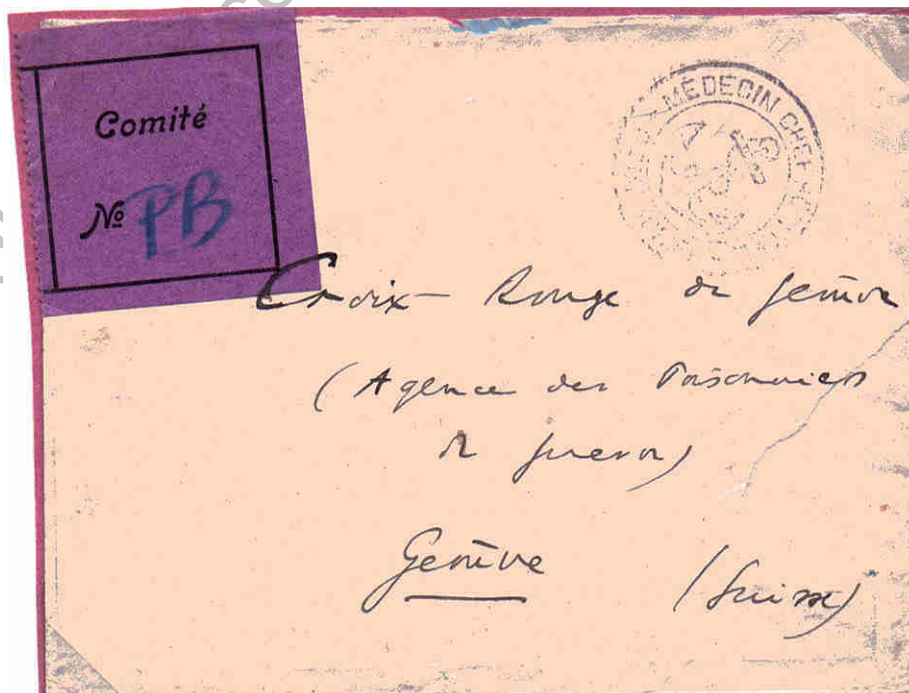 Comité
№ PB
MÉDECIN CHEF
Croix-Rouge de Genève
(Agence des Prisonniers
de guerre)
Genève (Suisse)